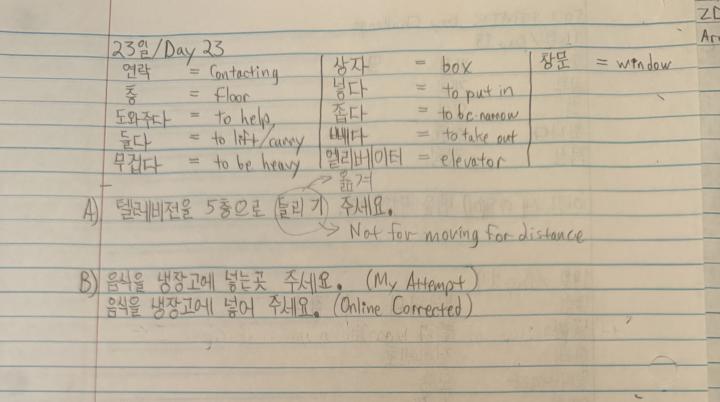 23일/Day 23
연락 = Contacting
층 = floor
도와주다 = to help
들다 = to lift/carry
무겁다 = to be heavy
상자 = box
넣다 = to put in
좁다 = to be narrow
빼다 = to take out
엘리베이터 = elevator
창문 = window
옮겨
A) 텔레비전을 5층으로 들리기 주세요.
Not for moving for distance
B) 음식을 냉장고에 넣는곳 주세요. (My Attempt)
음식을 냉장고에 넣어 주세요. (Online Corrected)